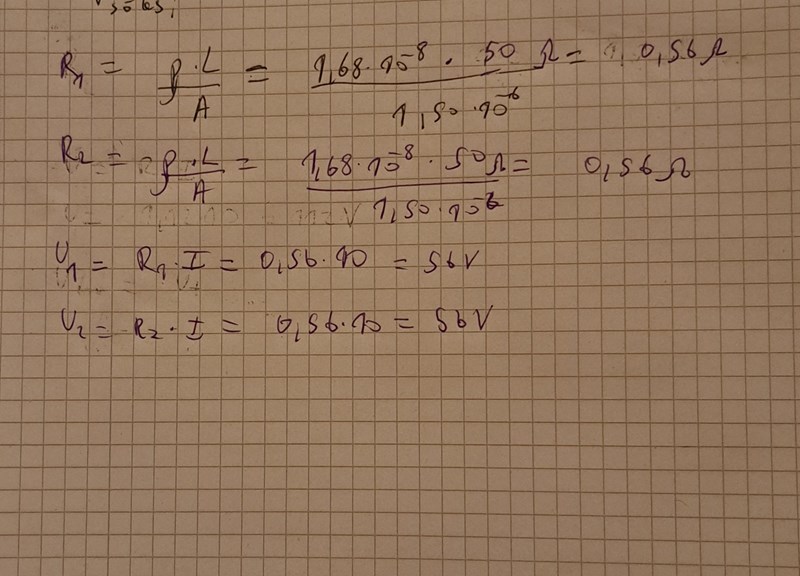 R₁ = ρ·L/A = 1,68·10⁻⁸ · 50 Ω / 1,50·10⁻⁶ = 0,56Ω
R₂ = ρ·L/A = 1,68·10⁻⁸ · 50Ω / 1,50·10⁻⁶ = 0,56Ω
U₁ = R₁·I = 0,56·10 = 56V
U₂ = R₂·I = 0,56·10 = 56V